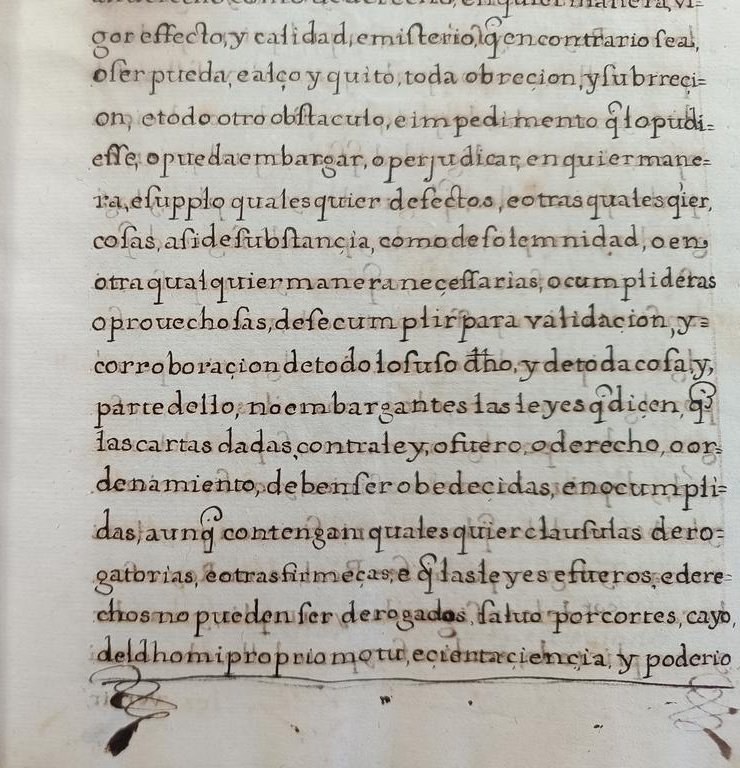 gor effecto, y calidad, e misterio, q̃ en contrario sea,
o ser pueda, e alço y quito, toda obrecion, y subrreçi=
on, e todo otro obstaculo, e impedimento q̃ lo pudi=
esse, o pueda embargar, o perjudicar, en quier mane=
ra, e supplo quales quier defectos, e otras quales qier,
cosas, asi de substançia, como de solemnidad, o en,
otra qualquier manera neçessarias, o cumplideras
o prouechosas, de se cumplir para validaçion, y=
corroboraçion de todo lo suso dħo, y de toda cosa, y,
parte dello, no embargantes las leyes q̃ diçen, q̃
las cartas dadas, contra ley, o fuero, o derecho, o or=
denamiento, deben ser obedecidas, e no cumpli=
das, aunq̃ contengan quales quier clausulas dero=
gatorias, e otras firmeças, e q̃ las leyes e fueros, e dere=
chos no pueden ser derogados, saluo por cortes, ca yo,
del dho mi proprio motu, e cierta ciençia, y poderio